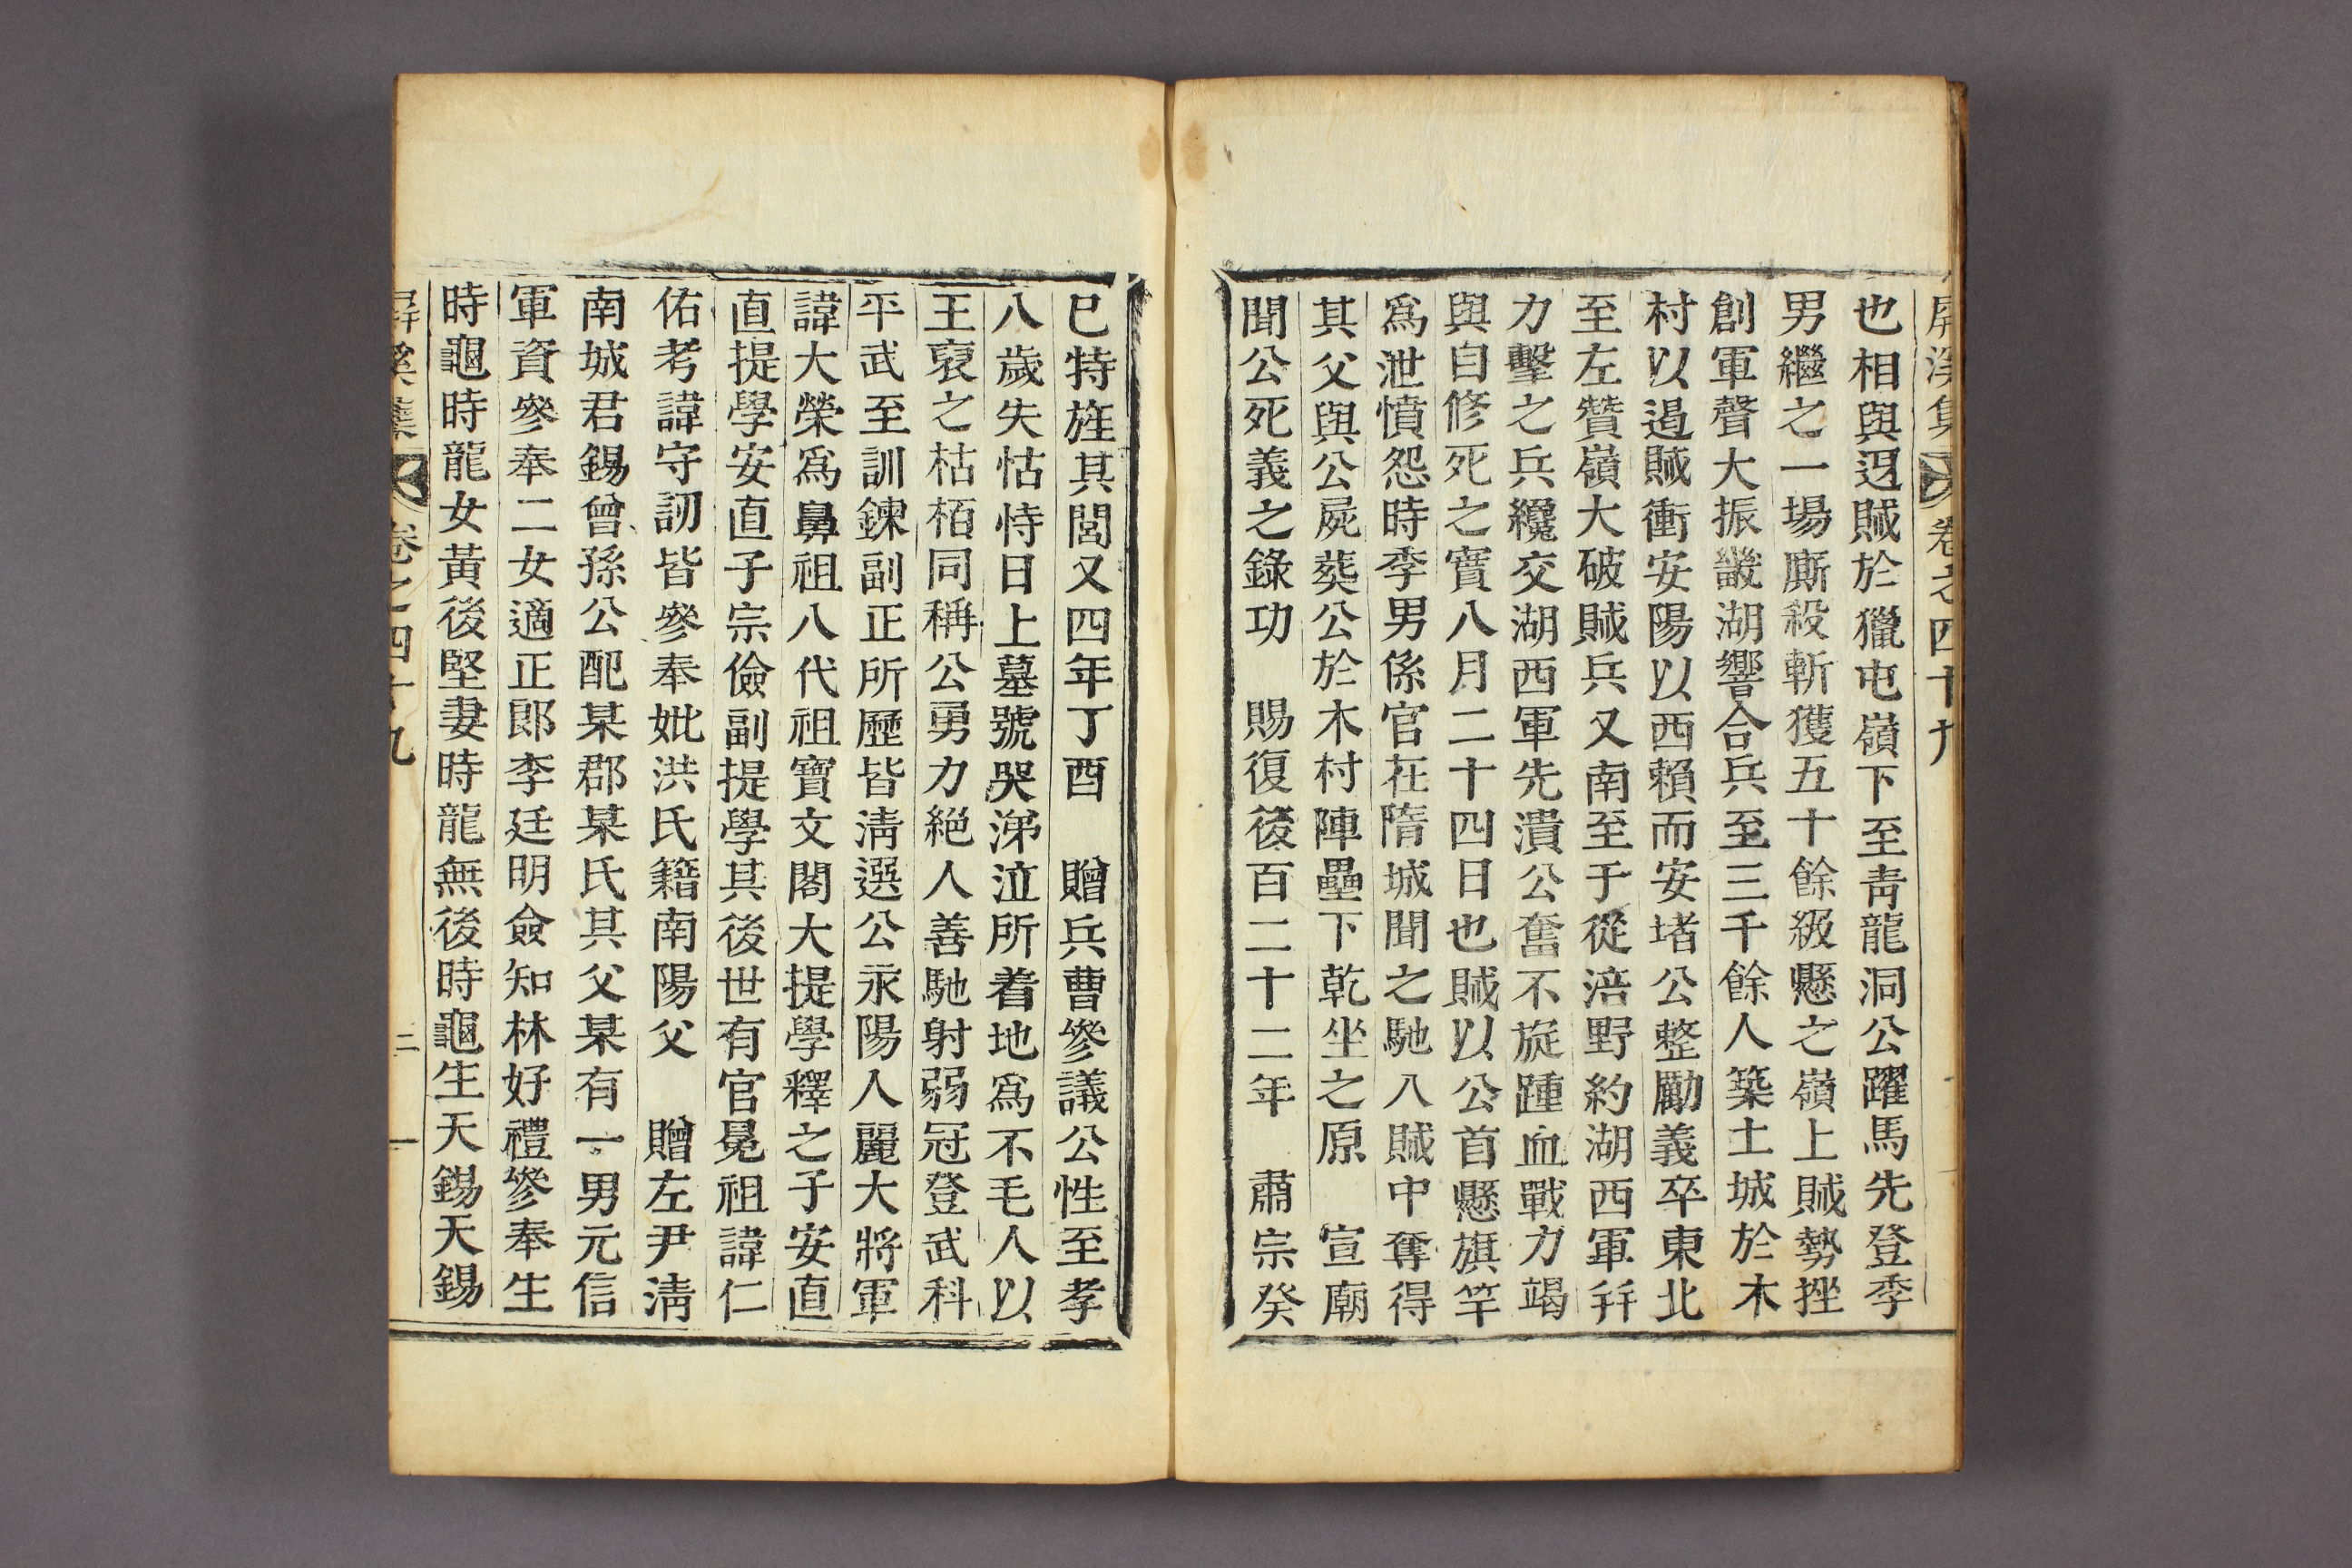 屛溪集 卷之四十九
也相與迓賊於獵屯嶺下至靑龍洞公躍馬先登季
男繼之一場廝殺斬獲五十餘級懸之嶺上賊勢挫
創軍聲大振畿湖響合兵至三千餘人築土城於木
村以遏賊衝安陽以西賴而安堵公整勵義卒東北
至左贊嶺大破賊兵又南至于從涪野約湖西軍幷
力擊之兵纔交湖西軍先潰公奮不旋踵血戰力竭
與自修死之實八月二十四日也賊以公首懸旗竿
爲泄憤怨時季男係官在隋城聞之馳入賊中奪得
其父與公屍葬公於木村陣壘下乾坐之原 宣廟
聞公死義之錄功 賜復後百二十二年 肅宗癸
巳特旌其閭又四年丁酉 贈兵曹參議公性至孝
八歲失怙恃日上墓號哭涕泣所着地爲不毛人以
王裒之枯栢同稱公勇力絕人善馳射弱冠登武科
平武至訓鍊副正所歷皆淸選公永陽人麗大將軍
諱大榮爲鼻祖八代祖寶文閣大提學釋之子安直
直提學安直子宗儉副提學其後世有官冕祖諱仁
佑考諱守訒皆參奉妣洪氏籍南陽父 贈左尹淸
南城君錫曾孫公配某郡某氏其父某有一男元信
軍資參奉二女適正郞李廷明僉知林好禮參奉生
時龜時龍女黃後堅妻時龍無後時龜生天錫天錫
屛溪集 卷之四十九 三